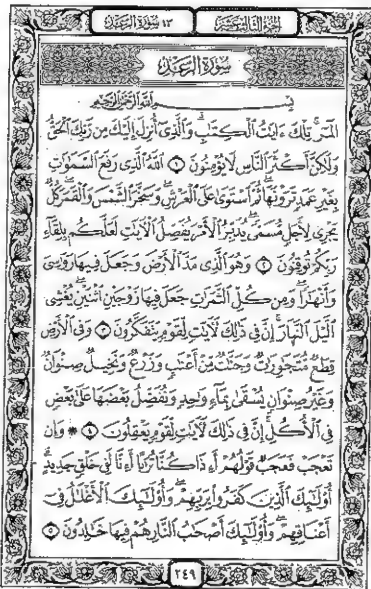 الجزء الثالث عشر ١٣ سورة الرعد
سُورَةُ الرَّعْدِ
بِسْمِ اللَّهِ الرَّحْمَٰنِ الرَّحِيمِ
الٓمٓر تِلْكَ ءَايَٰتُ ٱلْكِتَٰبِ وَٱلَّذِىٓ أُنزِلَ إِلَيْكَ مِن رَّبِّكَ ٱلْحَقُّ
وَلَٰكِنَّ أَكْثَرَ ٱلنَّاسِ لَا يُؤْمِنُونَ ١ ٱللَّهُ ٱلَّذِى رَفَعَ ٱلسَّمَٰوَٰتِ
بِغَيْرِ عَمَدٍ تَرَوْنَهَا ثُمَّ ٱسْتَوَىٰ عَلَى ٱلْعَرْشِ وَسَخَّرَ ٱلشَّمْسَ وَٱلْقَمَرَ كُلٌّ
يَجْرِى لِأَجَلٍ مُّسَمًّى يُدَبِّرُ ٱلْأَمْرَ يُفَصِّلُ ٱلْءَايَٰتِ لَعَلَّكُم بِلِقَآءِ
رَبِّكُمْ تُوقِنُونَ ٢ وَهُوَ ٱلَّذِى مَدَّ ٱلْأَرْضَ وَجَعَلَ فِيهَا رَوَٰسِىَ
وَأَنْهَٰرًا وَمِن كُلِّ ٱلثَّمَرَٰتِ جَعَلَ فِيهَا زَوْجَيْنِ ٱثْنَيْنِ يُغْشِى
ٱلَّيْلَ ٱلنَّهَارَ إِنَّ فِى ذَٰلِكَ لَءَايَٰتٍ لِّقَوْمٍ يَتَفَكَّرُونَ ٣ وَفِى ٱلْأَرْضِ
قِطَعٌ مُّتَجَٰوِرَٰتٌ وَجَنَّٰتٌ مِّنْ أَعْنَٰبٍ وَزَرْعٌ وَنَخِيلٌ صِنْوَانٌ
وَغَيْرُ صِنْوَانٍ يُسْقَىٰ بِمَآءٍ وَٰحِدٍ وَنُفَضِّلُ بَعْضَهَا عَلَىٰ بَعْضٍ
فِى ٱلْأُكُلِ إِنَّ فِى ذَٰلِكَ لَءَايَٰتٍ لِّقَوْمٍ يَعْقِلُونَ ٤ ۞ وَإِن
تَعْجَبْ فَعَجَبٌ قَوْلُهُمْ أَءِذَا كُنَّا تُرَٰبًا أَءِنَّا لَفِى خَلْقٍ جَدِيدٍ
أُو۟لَٰٓئِكَ ٱلَّذِينَ كَفَرُوا۟ بِرَبِّهِمْ وَأُو۟لَٰٓئِكَ ٱلْأَغْلَٰلُ فِىٓ
أَعْنَاقِهِمْ وَأُو۟لَٰٓئِكَ أَصْحَٰبُ ٱلنَّارِ هُمْ فِيهَا خَٰلِدُونَ ٥
٢٤٩